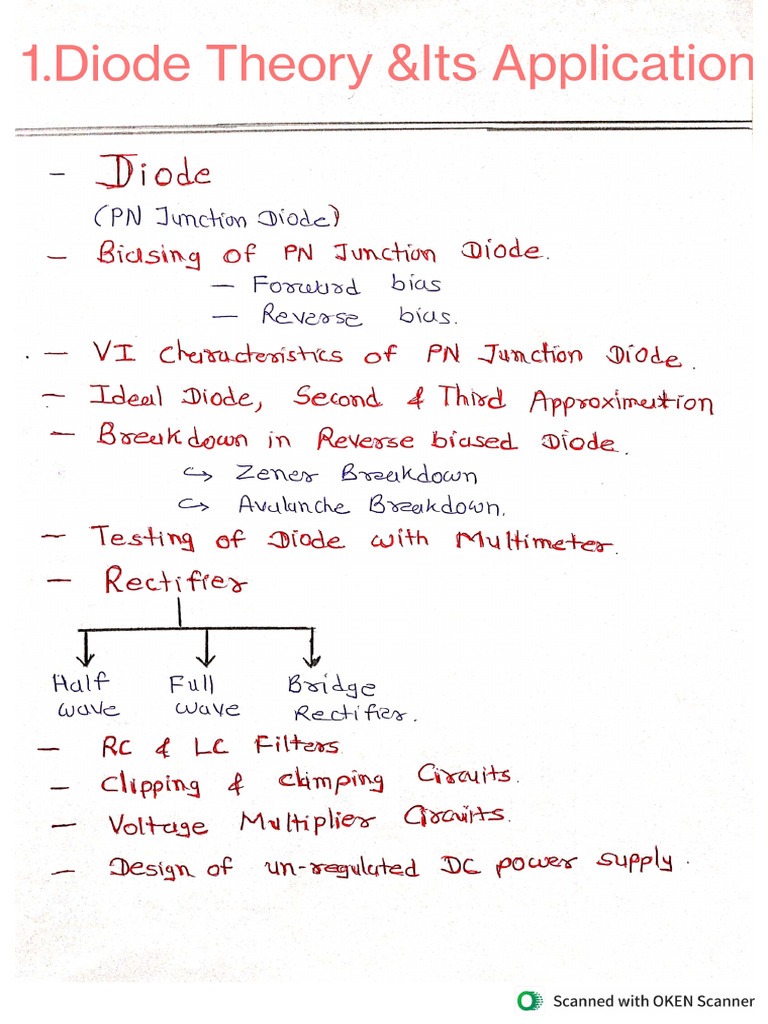 1.Diode Theory &Its Application
- Diode
(PN Junction Diode)
- Biasing of PN Junction Diode.
- Forward bias
- Reverse bias.
- VI Characteristics of PN Junction Diode.
- Ideal Diode, Second & Third Approximation
- Breakdown in Reverse biased Diode.
↪ Zener Breakdown
↪ Avalanche Breakdown.
- Testing of Diode with Multimeter.
- Rectifier
Half Full Bridge
wave wave Rectifier.
- RC & LC Filters.
- Clipping & Clamping Circuits.
- Voltage Multiplier Circuits.
- Design of un-regulated DC power supply.
Scanned with OKEN Scanner